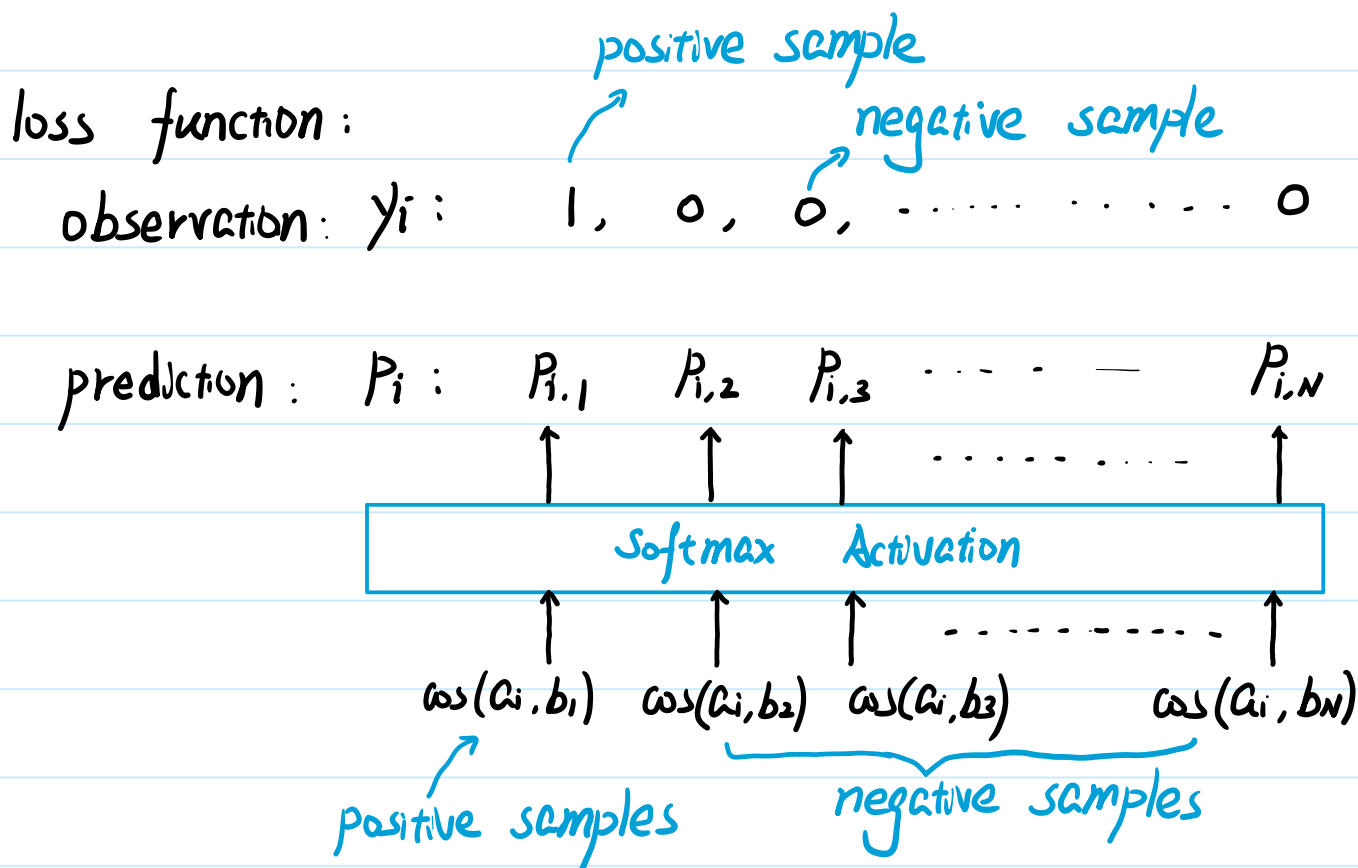 positive sample
loss function:
negative sample
observation: yi: 1, 0, 0, ............ 0
prediction: Pi: Pi,1 Pi,2 Pi,3 ........ Pi,N
Softmax Activation
cos(ai,b1) cos(ai,b2) cos(ai,b3) cos(ai,bN)
positive samples
negative samples